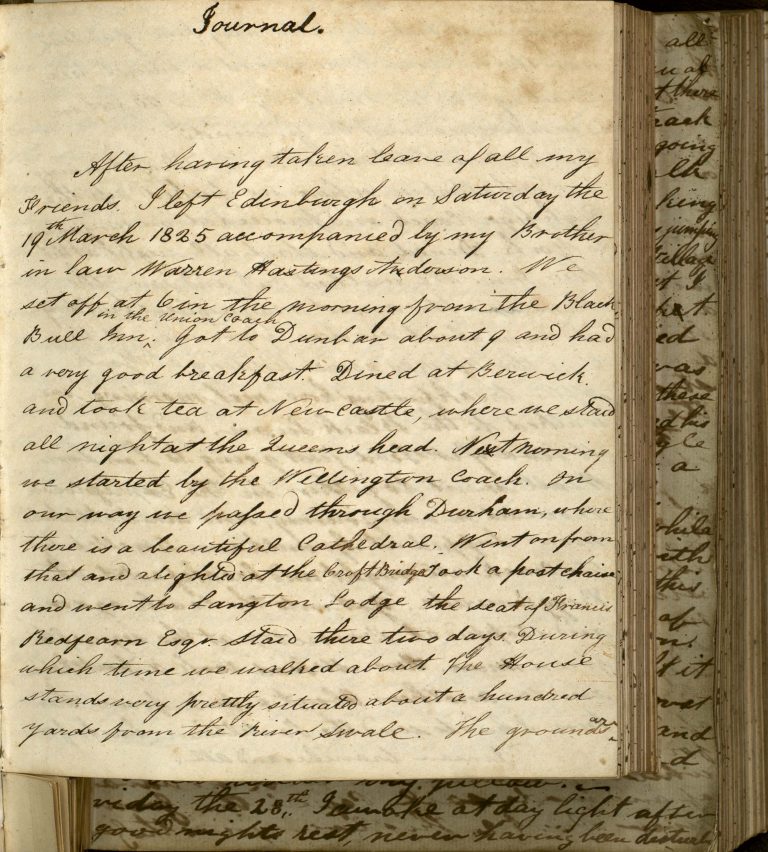 Journal.
After having taken leave of all my
Friends. I left Edinburgh on Saturday the
19th March 1825 accompanied by my Brother
in law Warren Hastings Anderson. We
set off at 6 in the morning from the Black
in the Union Coach
Bull Inn ‸. Got to Dunbar about 9 and had
a very good breakfast. Dined at Berwick.
and took tea at Newcastle, where we staid
all night at the Queens head. Next Morning
we started by the Wellington Coach. On
our way we passed through Durham, where
there is a beautiful Cathedral. Went on from
that and alighted at the Croft Bridge Took a post chaise
and went to Langton Lodge the seat of Francis
Redfearn Esqr. Staid there two days. During
which time we walked about. The House
stands very prettily situated about a hundred
yards from the River Swale. The grounds
are
all
of
there
track
going
king
jumping
village
I
ed
was
these
his
a
while
with
this
of
it
and
d
the 28th. I awoke at day light after
good nights rest, never having been disturb